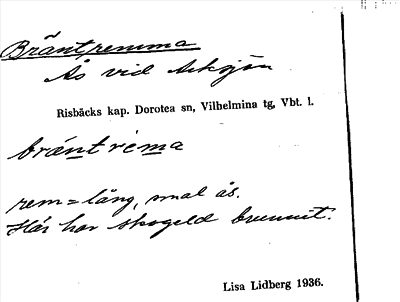 Bräntremma
Ås vid Arksjön
Risbäcks kap. Dorotea sn, Vilhelmina tg, Vbt. l.
bräntrema
rem = lång, smal ås.
Här har skogeld brunnit.
Lisa Lidberg 1936.